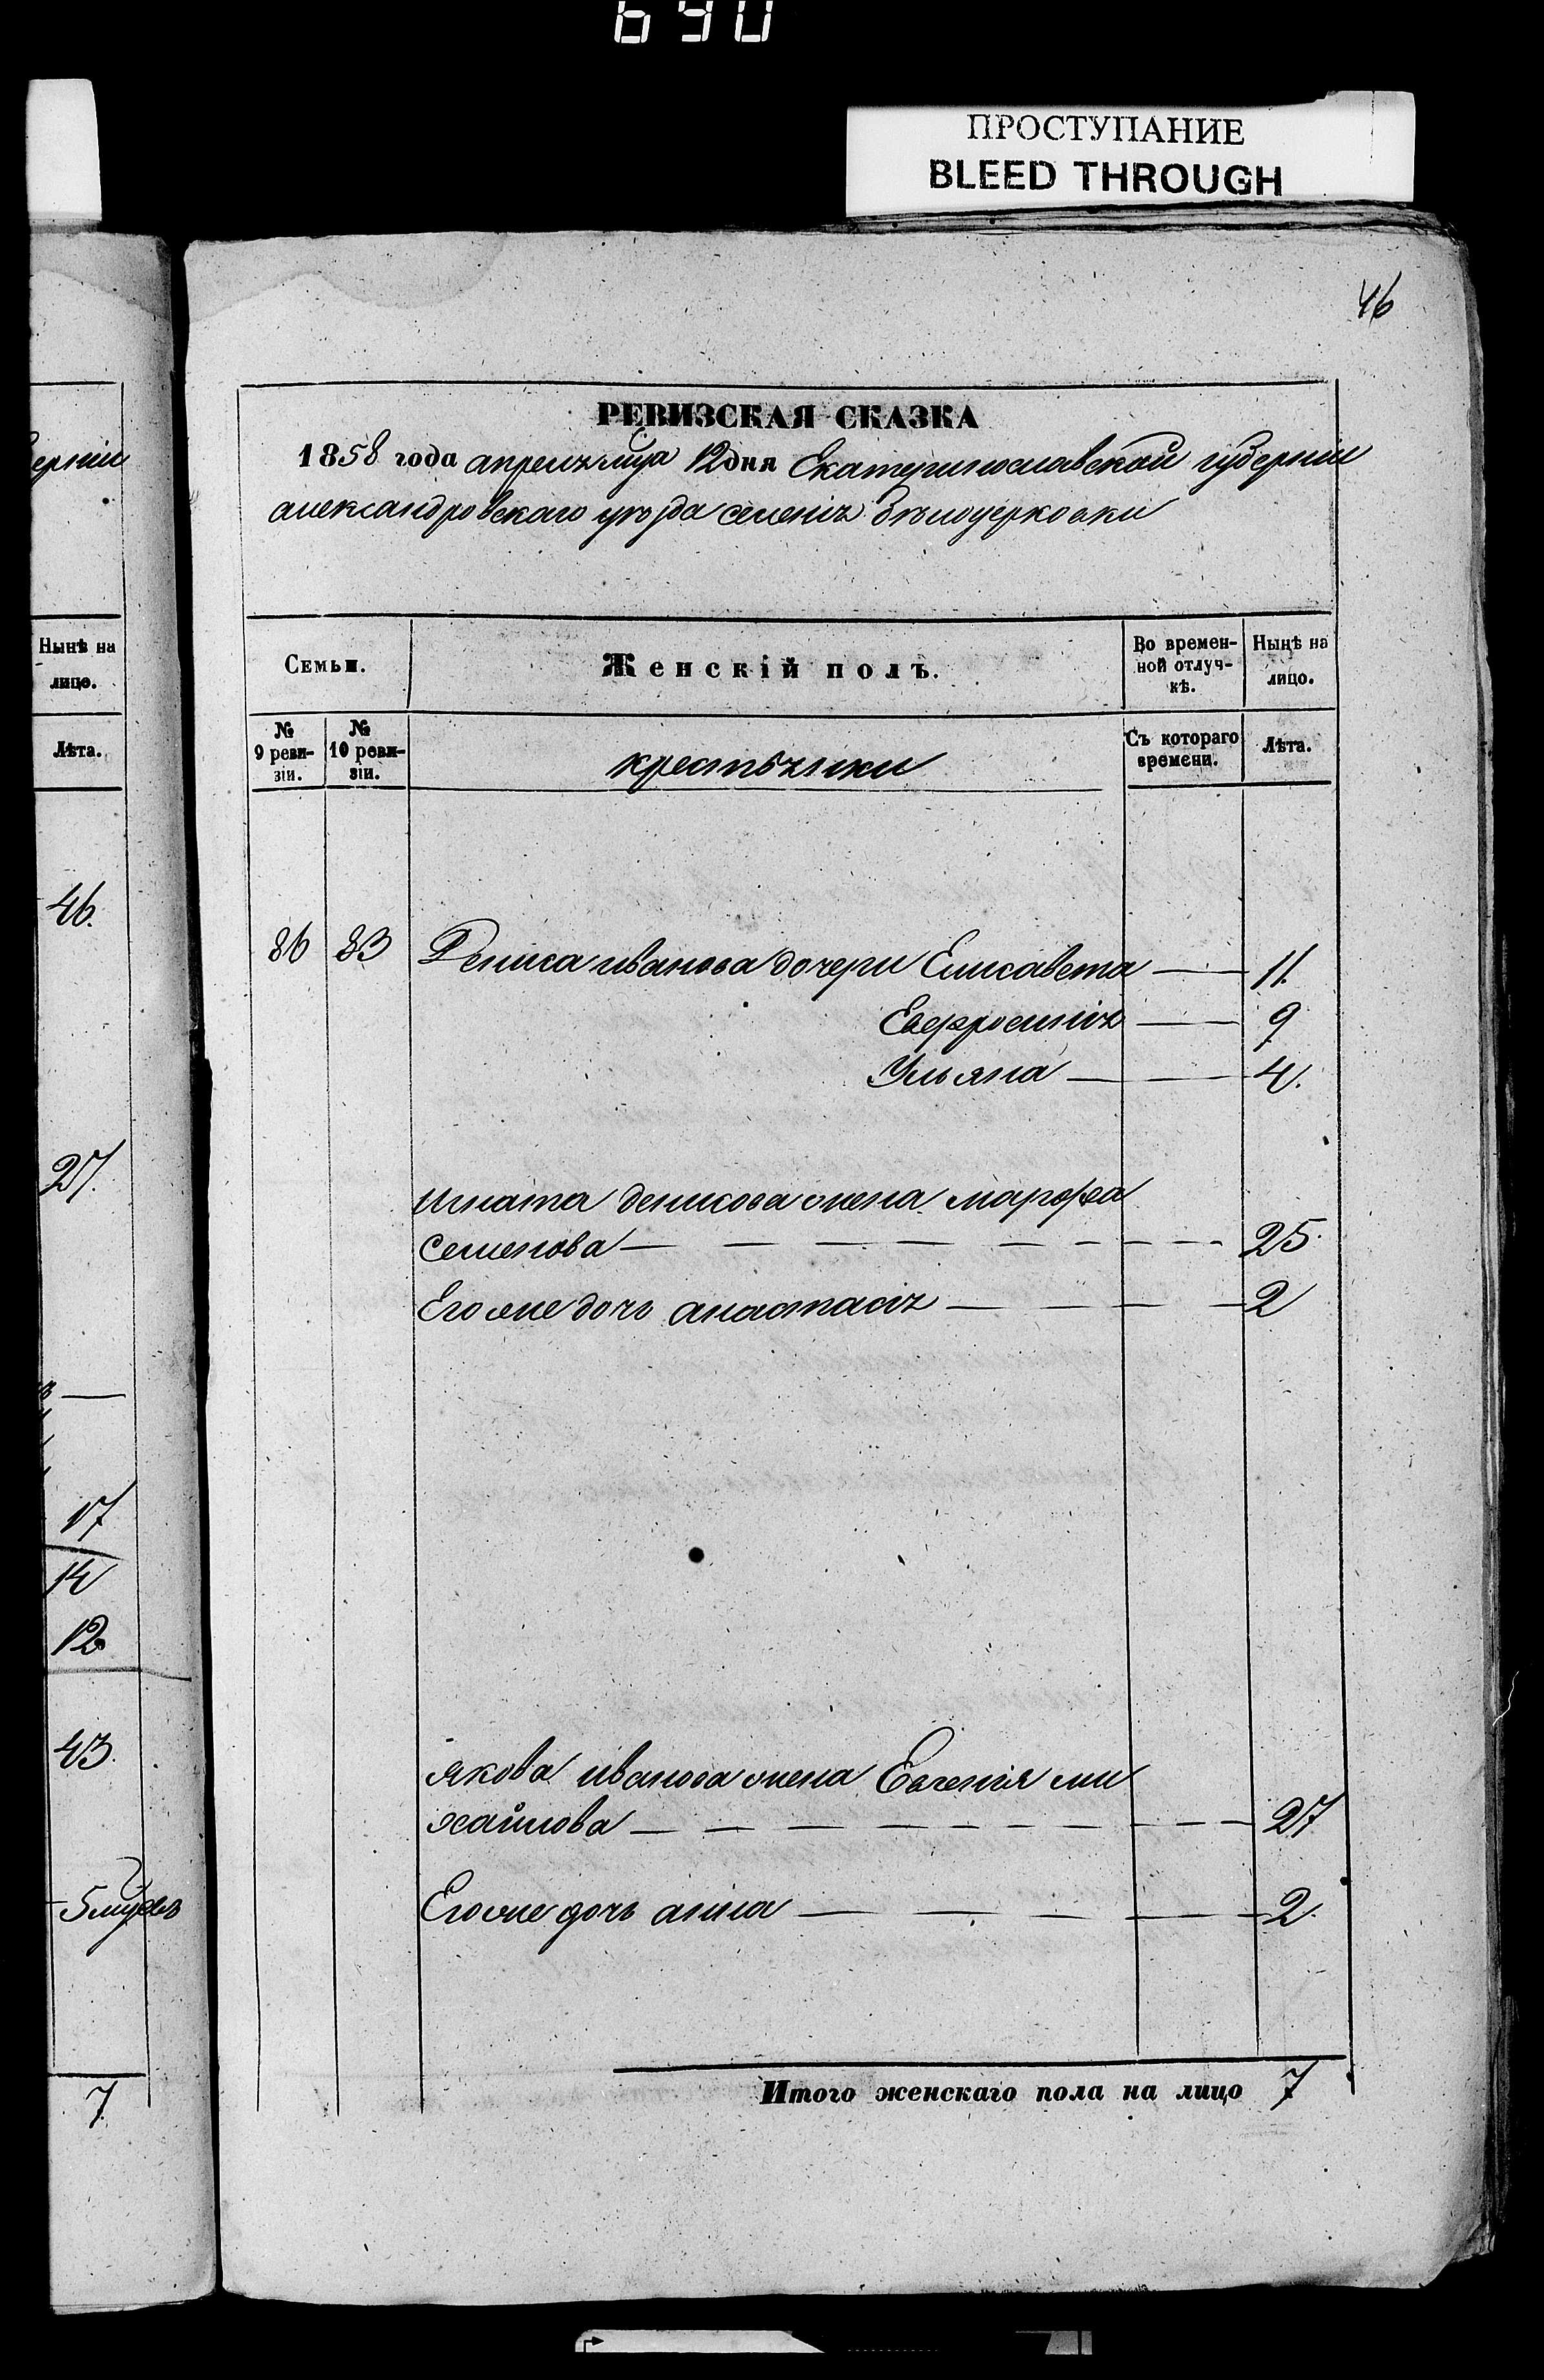 690
ПРОСТУПАНИЕ
BLEED THROUGH
46
РЕВИЗСКАЯ СКАЗКА
1858 года апреля мца 12 дня Екатеринославской губерніи
александровскаго уезда селенія Белоцерковки
Семьи.
Женскій полъ.
Во времен-
ной отлуч-
кѣ.
Нынѣ на
лицо.
№
9 реви-
зіи.
№
10 реви-
зіи.
крестьянки
Съ котораго
времени.
Лѣта.
86 83 Дениса иванова дочери Елисавета — 11.
Евфросинія — 9
Ульяна — 4.
игната денисова жена марфа
семенова — 25.
Его же дочь анастасія — 2
якова иванова жена Евгенія ми
хайлова — 27
Его же дочь анна — 2.
Итого женскаго пола на лицо 7
ерніи
Нынѣ на
лицо.
Лѣта.
46.
27.
17
14
12
43.
5 мцевъ
7